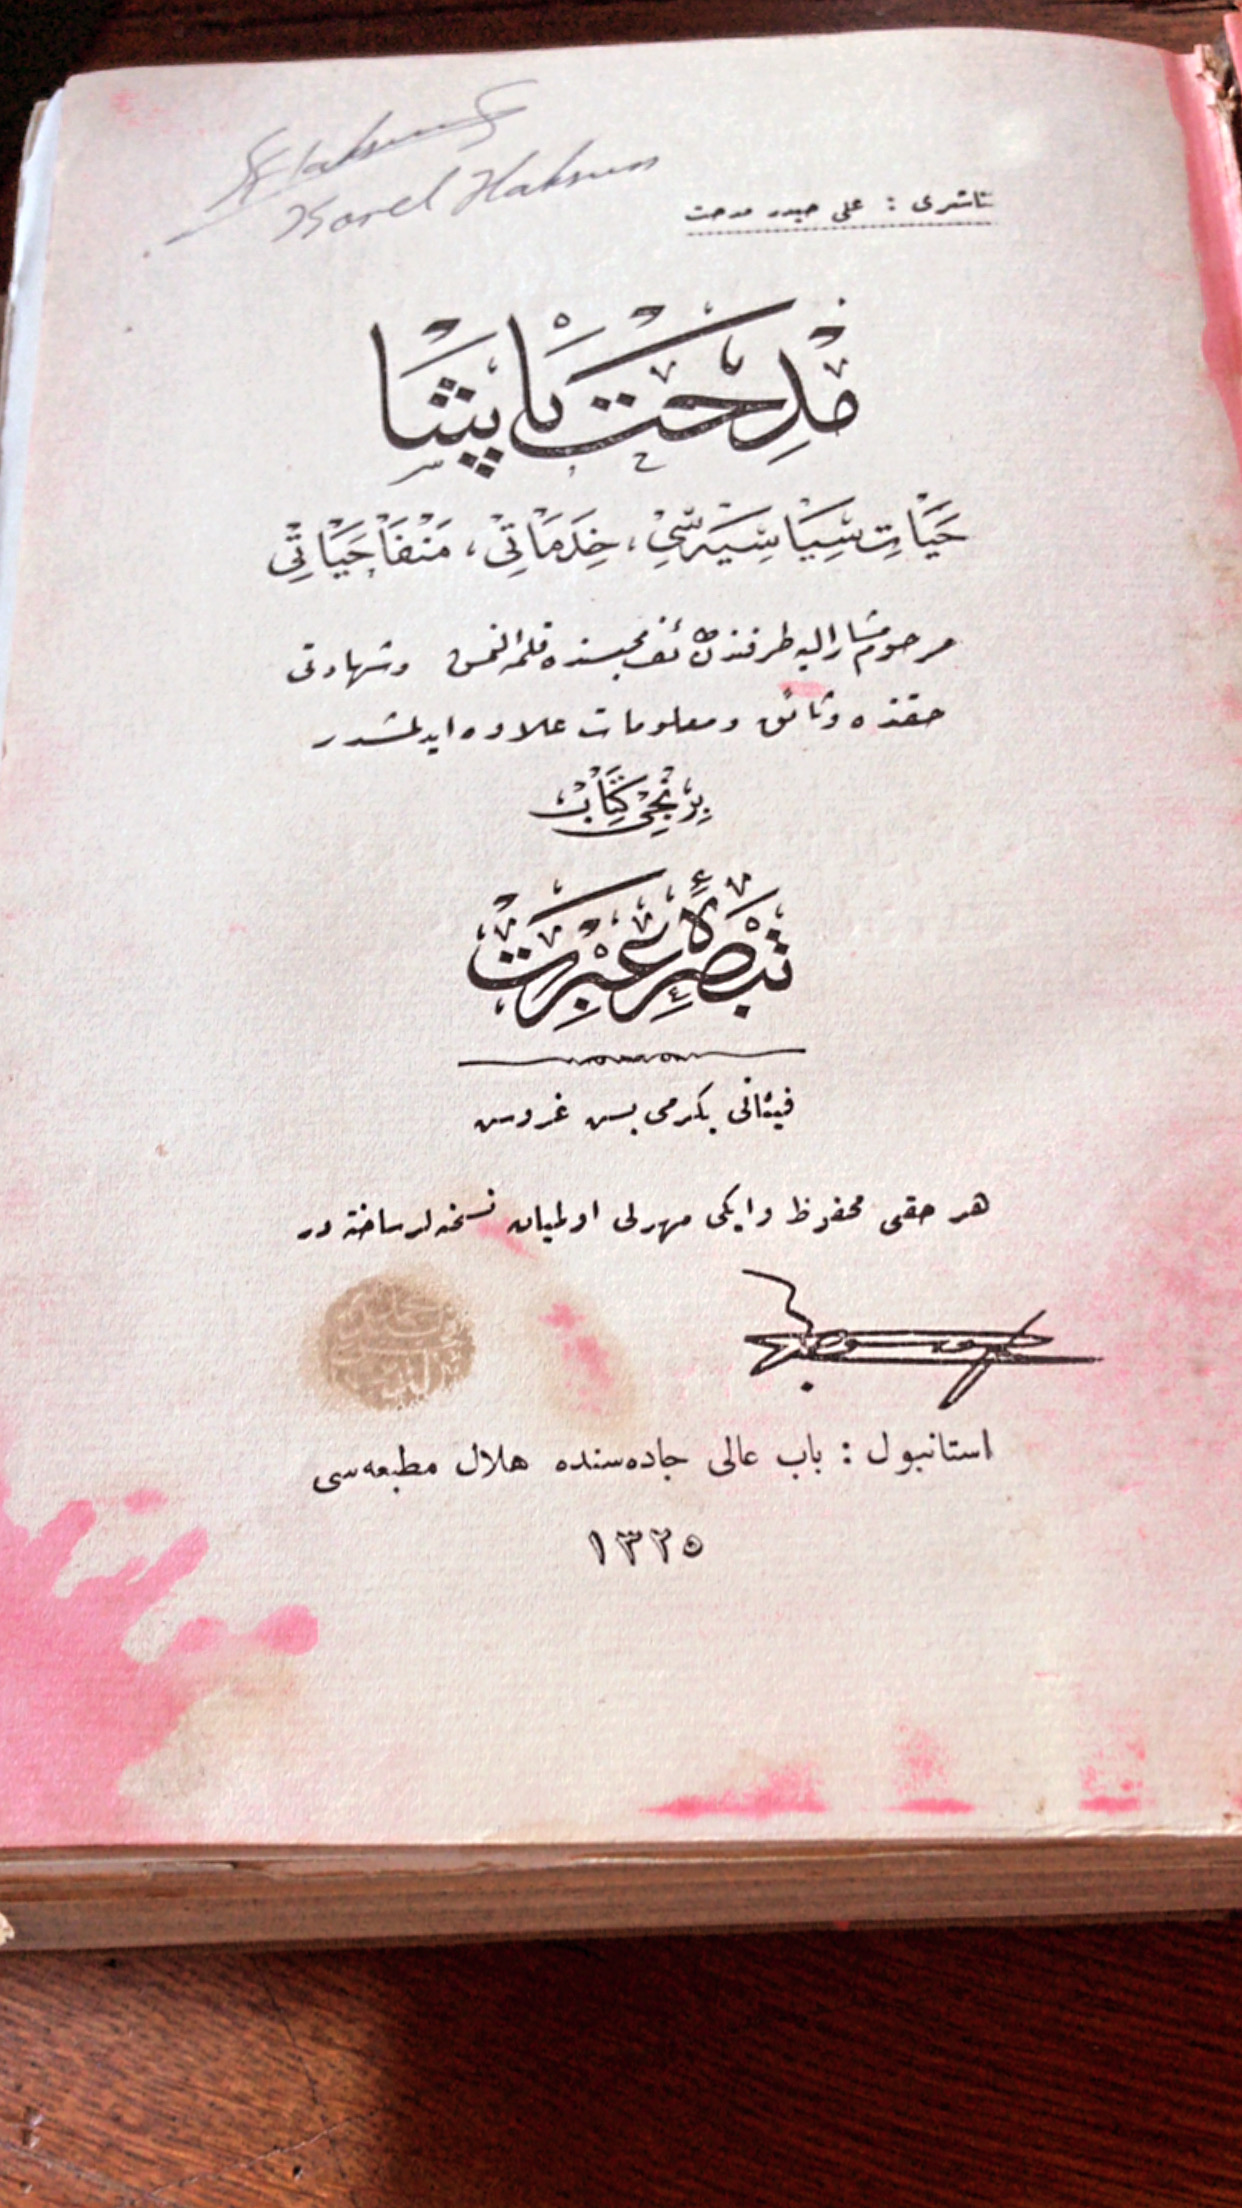 Karel Haksun
ناشری : علی حیدر مدحت
مِدْحَتْ پَاشَا
حَيَاتِ سِيَاسِيَه سِی، خِدَمَاتِی، مَنْفَا حَيَاتِی
مرحوم مشار الیه طرفندن طائف محبسنده قلمه النمش وشهادتی
حقنده وثائق ومعلومات علاوه ایدلمشدر
بِرِنْجِی كِتَابْ
تَبْصِرَۀ عِبْرَتْ
فیئاتی یکرمی بش غروش
هر حقی محفوظ وایکی مهرلی اولمیان نسخه لر ساخته در
استانبول : باب عالی جاده سنده هلال مطبعه سی
١٣٢٥